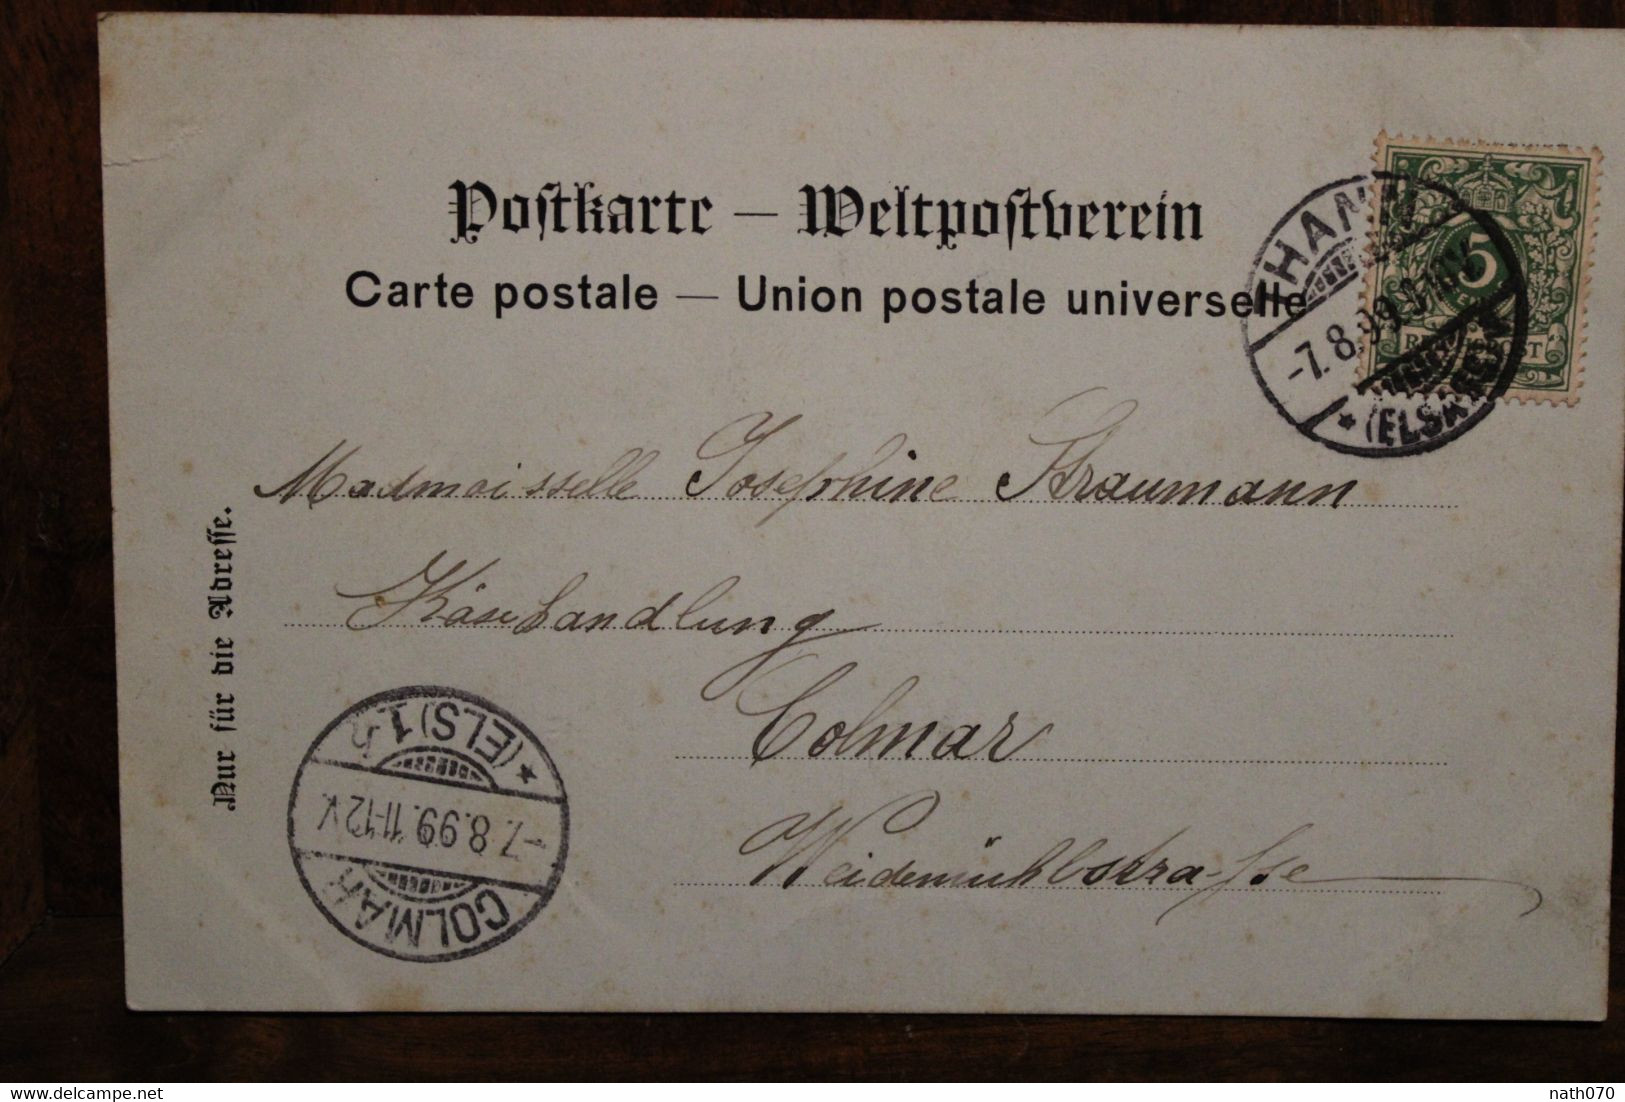 Postkarte — Weltpostverein
Carte postale — Union postale universelle
THANN
-7.8.99. 9-10V.
* (ELSASS)
5
REICHSPOST
Madmoisselle Josephine Straumann
Käsehandlung
Colmar
Weidemühlstrasse
Nur für die Adresse.
COLMAR
-7.8.99.11-12V.
* (ELS) 1.h
delcampe.net
nath070